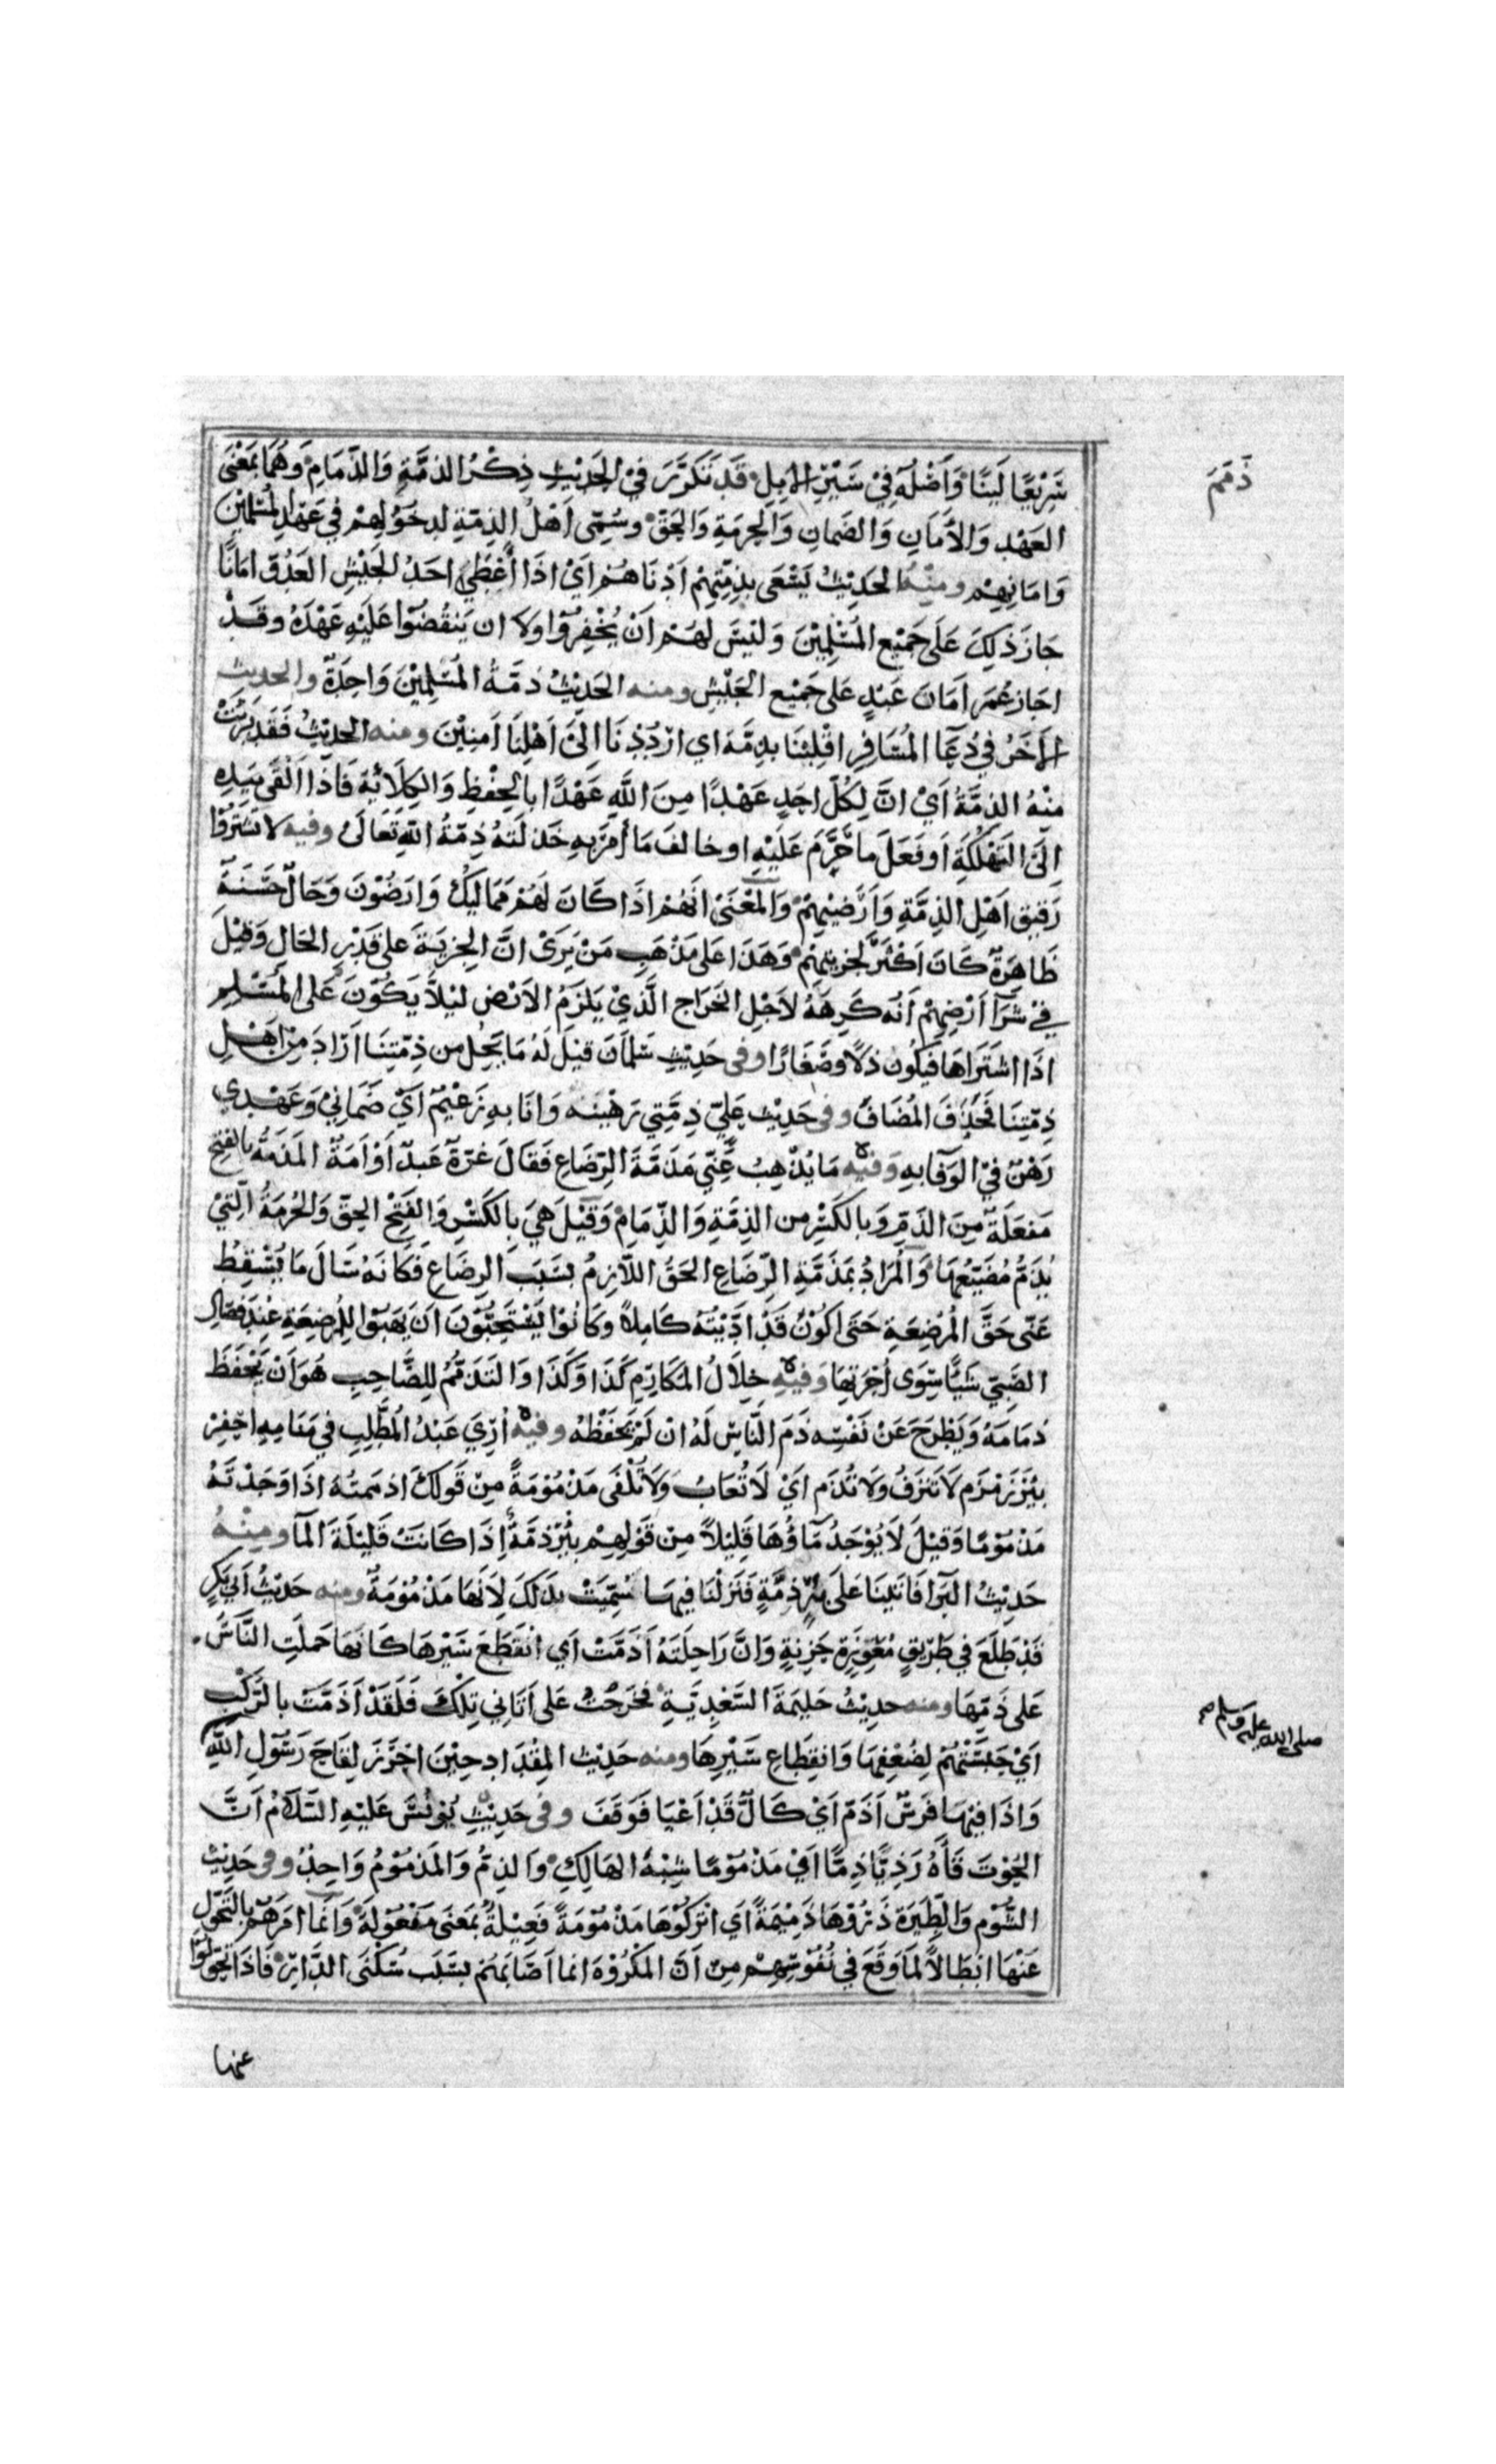 ذَمَمَ
سَرِيْعًا لَيِّنًا وَأَصْلُهُ فِيْ سَيْرِ الإبِلِ قَد تَكَرَّرَ فِي الحَدِيْثِ ذِكْرُ الذِمَّةِ وَالذِّمَامِ وَهُمَا بِمَعْنَى
العَهْدِ وَالأَمَانِ وَالضَمانِ وَالحِرمَةِ وَالحَقّ وسُمِّى اَهْلُ الذِمّةِ لدخُوْلِهِمْ فِي عَهْدِ المُسْلِمِيْنَ
وَامَانِهِمْ ومِنْهُ الحَدِيْثُ يَسْعَى بِذِمَّتِهِمْ اَدْنَاهُمْ اَيْ اذَا أَعْطَى احَدُ الجَيْشِ العَدُوَّ امَانًا
جَازَ ذَلِكَ عَلَى جَمِيْعِ المُسْلِمِيْنَ وَلَيْسَ لَهُمْ اَنْ يُخْفِرُوْا ولا ان يَنقُضُوْا عَلَيْهِ عَهْدَهُ وقَدْ
اجَازَ عُمَر اَمَانَ عَبْدٍ عَلى جَمِيْع الجَيْشِ ومنه الحَدِيْثُ ذمَّةُ المُسْلِمِيْنَ وَاحِدَةٌ والحديث
الآخَرُ فِي دُعَآ المُسَافِرِ اقْلِبْنَا بِذِمَّه اي ارْدُدْنَا اِلَى اَهْلِنَا آمِنِيْنَ ومنه الحَدِيْثُ فَقَد بَرِئَتْ
مِنْهُ الذِمَّةُ اَيْ انَّ لِكُلّ احَدٍ عَهْدًا مِنَ اللَّهِ عَهْدًا بالحِفْظِ وَالكِلَائَةِ فَاذَا اَلْقَى بِيَدِهِ
اِلَى التَهْلُكَةِ اَو فَعَلَ ما حُرِّمَ عَلَيْهِ او خالفَ مَا أُمِرَ بهِ خَذَلَتهُ ذِمّةُ اللهِ تَعَالَى وفيه لا تَشتَرُوْا
رَقِيْقَ اَهْلِ الذِمَّةِ وَاَرَضِيْهِمْ وَالمَعْنَى انَهُمْ اذَا كَانَ لَهُمْ مَمَالِيكُ وَارَضُوْنَ وَحَالٌ حَسَنَةٌ
ظَاهِرَةٌ كَانَ اَكْثَرَ لجِزيَتِهِمْ وَهَذَا عَلى مَذْهَبِ مَنْ يَرَىْ انَّ الجِزيَةَ عَلى قَدْرِ الحَالِ وَقِيْلَ
فِيْ شرَآ أَرْضِهِمْ أَنَّهُ كَرِهَهُ لاَجْلِ الخَرَاجِ الَّذِيْ يَلزَمُ الاَرْضَ لئلاَّ يَكُوْنَ عَلَى المُسْلِمِ
اذَا اشتَرَاهَا فَيكُون ذلاًّ وصَغَارًا وفى حَدِيْثِ سَلمَانَ قِيْلَ لَهُ مَا يَحِلُ من ذِمّتِنَا ارَادَ مِنْ اَهْلِ
ذِمّتِنَا فَحَذَفَ المُضَافَ وفى حَدِيْثِ عَلِيّ ذِمَّتِي رَهْيْنه وَانَا بهِ زَعْيْمٌ اَيْ ضَمَانِيْ وَعَهْدِي
رَهْنٌ فِيْ الوَفَا بهِ وَفيْه مَا يُذْهِبُ عَنِّي مَذَمَّةَ الرِّضَاعِ فَقَالَ غرّةٌ عَبدٌ اَوْ اَمَةٌ المَذَمَّةُ بالفَتحِ
مَفعَلَةٌ مِنَ الذَمِّ وَبالكَسْرِ من الذِمَّةِ وَالذِّمَامِ وَقِيْلَ هِيَ بِالكَسْرِ وَالفَتْحِ الحقّ وَالحُرمَةُ الَّتِيْ
يُذَمُّ مُضَيِّعُهَا وَالمُرَادُ بمَذَمَّةِ الرِّضَاعِ الحَقُّ اللاَّزِمُ بِسَبَبَ الرِضَاعِ فَكَانَهُ سَالَ مَا يُسْقِطُ
عَنّى حَقَّ المُرْضِعَةِ حَتَى اكُوْن قَدْ ادَّيْتُهُ كَامِلاً وَكَانُوْا يَسْتَحِبُّوْنَ اَنْ يَهَبُوْا لِلْمُرضِعَةِ عِنْدَ فِصَالِ
الصَبِيّ شَيًّا سِوَى اُجْرَتِهَا وَفيْهِ خِلَالُ المَكَارِمِ كَذَا وَكَذَا وَالتَذَمُّمُ لِلصَّاحِبِ هُوَ اَنْ يَحْفَظَ
ذمَامَهُ وَيَطْرَحَ عَنْ نَفْسِه ذَمَ النَّاسِ لَهُ ان لَمْ يَحْفَظْهُ وفيْه أُرِيَ عَبْدُ المُطَّلِبِ فِي مَنَامِهِ احْفِرْ
بِئْرَ زَمْزَم لَا تَنزَفُ وَلَا تُذَم اَيْ لَا تُعَابُ وَلَا تُلْفَى مَذْمُوْمَةً مِنْ قَولِكَ اذ ممتهُ اذَا وَجَدْتَهُ
مَذْمُوْمًا وَقِيْلَ لَا يُوْجَدُ مَآؤُهَا قَلِيْلاً مِنْ قَوْلِهِمْ بِئْرٌ ذمَّةٌ إِذَا كَانَتْ قَلِيْلَةَ المَآ ومِنْهُ
حَدِيْثُ البَرَا فَاتَيْنَا عَلَى بِئْرٍ ذمَّةٍ فَنَزلْنَا فيهَا سُمِّيَتْ بِذَلَكَ لِاَنَّهَا مَذْمُوْمَةٌ ومنه حَدِيْثُ اَبِي بَكرٍ
قَدْ طَلَعَ في طَرِيْقٍ مُعْوِرَةٍ حَزِنةٍ وَانَّ رَاحِلَتَهُ أَذَمَّتْ اَي انْقَطَعَ سَيْرهَا كَانَهَا حَملَتِ النَّاسَ
عَلى ذَمّهَا ومنه حدِيْثُ حَلِيْمَةَ السَّعْدِيَّةِ فخَرَجْتُ عَلى اَتَانِي تِلْكَ فَلَقَدْ اَذَمَّتْ بالرَّكْبِ
اَيْ حَبَسَتْهُمْ لِضُعْفِهَا وَانقِطَاعِ سَيْرِهَا ومنه حَدِيْث المِقْدَادِ حِيْنَ احْرَزَ لِقَاحَ رَسُوْلِ اللَّهِ
صلى الله عليه وسلم صح
وَاذَا فِيْهَا فَرَسٌ اَذَمّ اَيْ كَالٌّ قَدْ اَعْيَا فَوَقَفَ وفى حَدِيْثِ يُوْنُسَ عَلَيْهِ السَّلَامُ اَنَّ
الحُوْتَ قَآءَهُ رَذِيًّا ذِمًّا ايْ مَذْمُوْمًا شِبْهُ الهَالِكِ وَالذِمُّ وَالمَذْمُوْمُ وَاحِدٌ وفى حَدِيْثِ
الشُّوْمِ وَالطِيَرَة ذَرُوْهَا ذَمِيْمَةً اَي اتْرَكُوْهَا مَذْمُوْمَةً فَعِيْلَةٌ بمَعنى مَفعُوْلَة وَانَما امَرَهُمْ بالتَحوّل
عَنْهَا ابْطَالاً لمَا وَقَعَ فِي نُفُوْسِهِمْ مِن اَنَّ المَكْرُوْهَ انما اَصَابَهُمْ بسَبَب سُكْنَى الدَّارِ فَاذَا تَحَوَّلُوْا
عنها